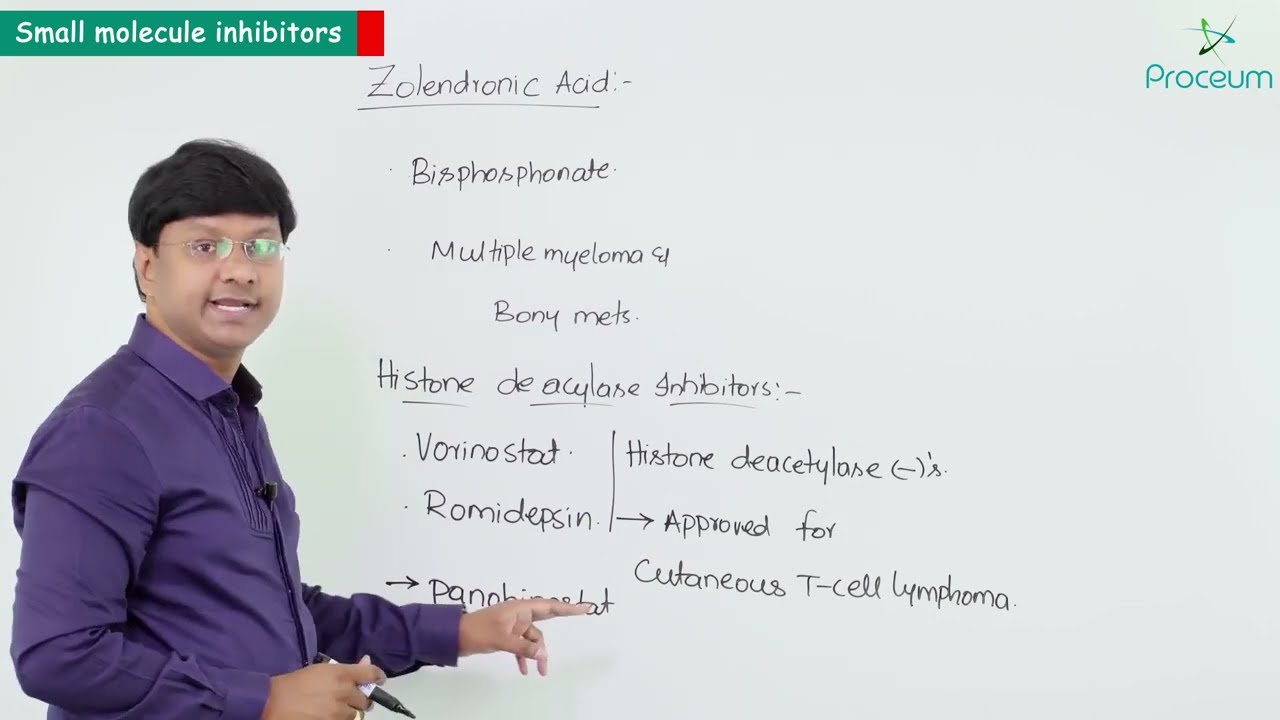 Small molecule inhibitors
Proceum
Zolendronic Acid:-
· Bisphosphonate.
· Multiple myeloma &
Bony mets.
Histone deacylase Inhibitors:-
· Vorinostat.
Histone deacetylase (-)'s.
· Romidepsin.
→ Approved for
Cutaneous T-cell lymphoma.
→ Panobinostat